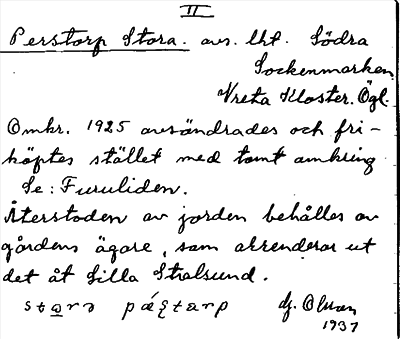 II
Perstorp Stora. avs. lht. Södra
Sockenmarken
Vreta Kloster. Ögl.
Omkr. 1925 avsändrades och fri-
köptes stället med tomt omkring
Se: Furuliden.
Återstoden av jorden behålles av
gårdens ägare, som akrenderar ut
det åt Lilla Stralsund.
1937